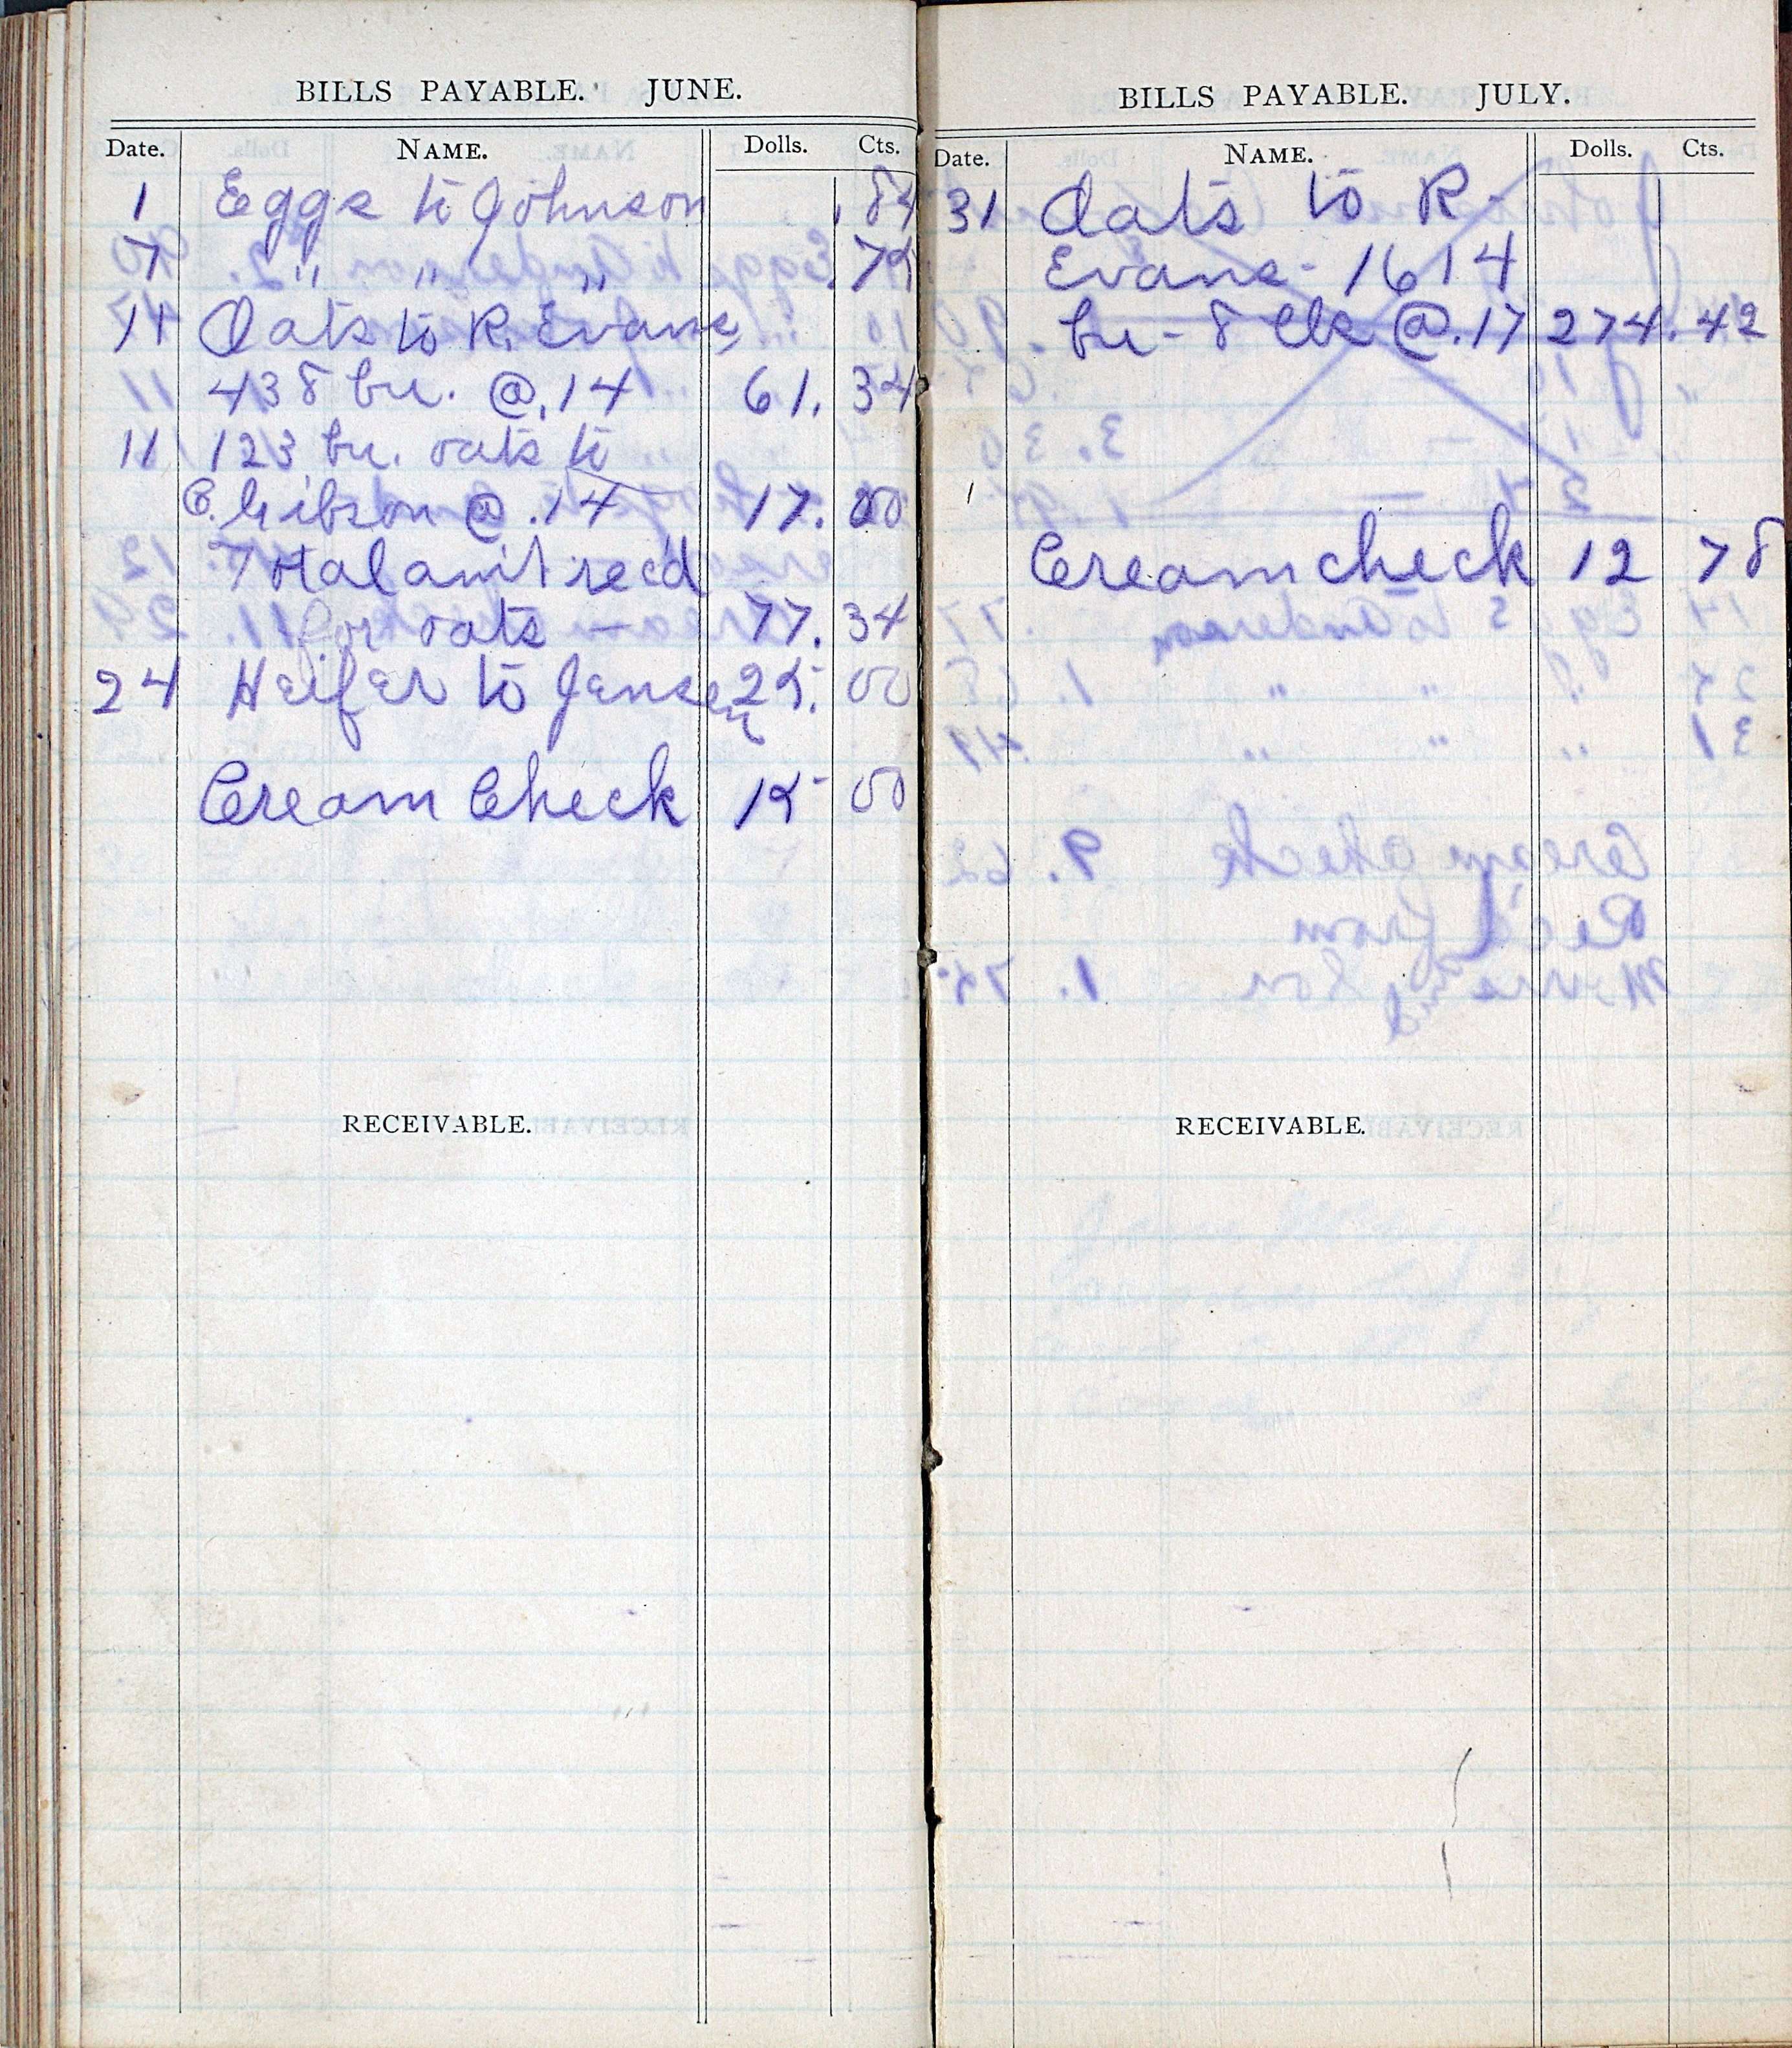 BILLS PAYABLE. JUNE.
Date. NAME. Dolls. Cts.
1 Eggs to Johnson .84
7 " " " .75
11 Oats to R. Evans,
438 bu. @ .14 61. 34
11 123 bu. oats to
C. Gibson @ .14 17. 00
Total am't rec'd
for oats — 77. 34
24 Heifer to Jensen 25. 00
Cream Check 15 00
RECEIVABLE.
BILLS PAYABLE. JULY.
Date. NAME. Dolls. Cts.
31 Oats to R.
Evans - 1614
bu - 8 lbs @ .17 274. 42
Cream check 12 78
RECEIVABLE.